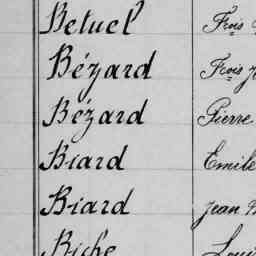 Betuel Frois
Bézard Frois J
Bézard Pierre
Biard Emile
Biard Jean B
Biche Loui